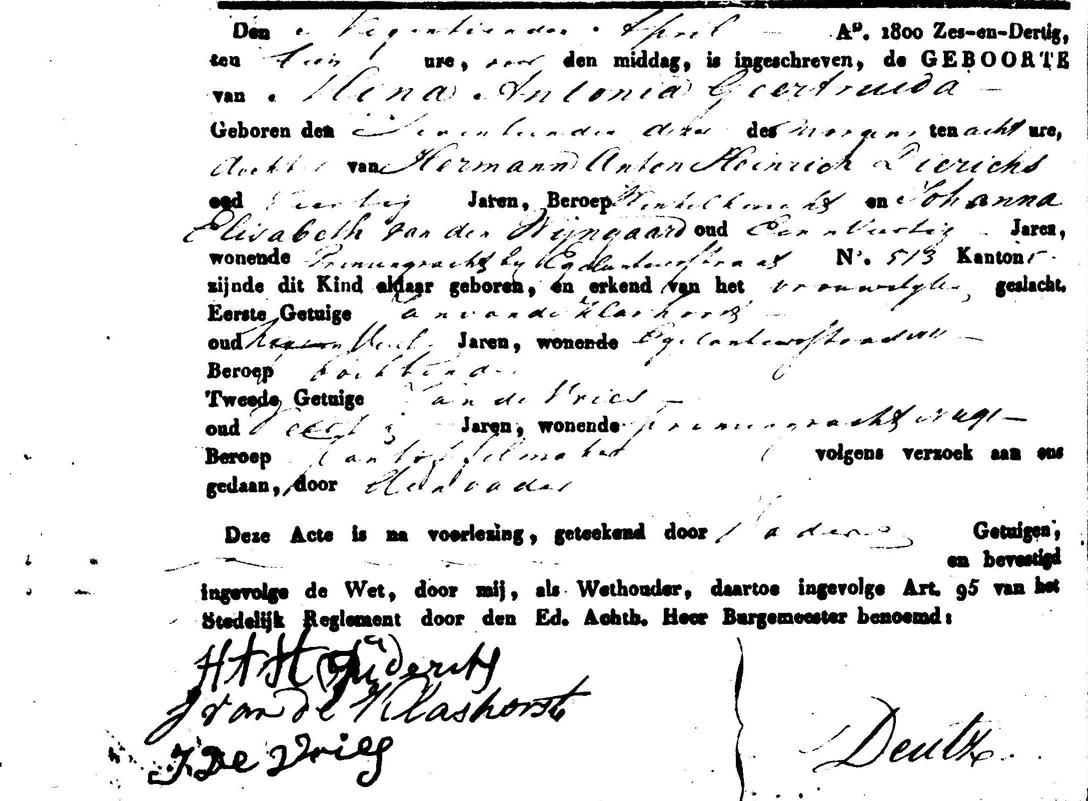 Den Negentienden April A°. 1800 Zes-en-Dertig,
ten tien ure, voor den middag, is ingeschreven, de GEBOORTE
van Mina Antonia Geertruida
Geboren den Zeventienden dezer des morgens ten acht ure,
dochter van Hermann Anton Heinrich Dierichs
oud Veertig Jaren, Beroep Winkelknecht en Johanna
Elisabeth van den Wijngaard oud Een en Veertig Jaren,
wonende Prinsengracht bij Egelantiersstraat N°. 513 Kanton
zijnde dit Kind aldaar geboren, en erkend van het vrouwelijke geslacht.
Eerste Getuige Jan van de Klashorst
oud Jaren, wonende Egelantiersstraat
Beroep
Tweede Getuige Jan de Vries
oud Jaren, wonende Prinsengracht
Beroep Pantoffelmaker volgens verzoek aan ons
gedaan, door den vader
Deze Acte is na voorlezing, geteekend door Vader Getuigen,
en bevestigd
ingevolge de Wet, door mij, als Wethouder, daartoe ingevolge Art. 95 van het
Stedelijk Reglement door den Ed. Achtb. Heer Burgemeester benoemd:
H A H Diderichs
J van de Klashorst
J. De Vries
Deutz